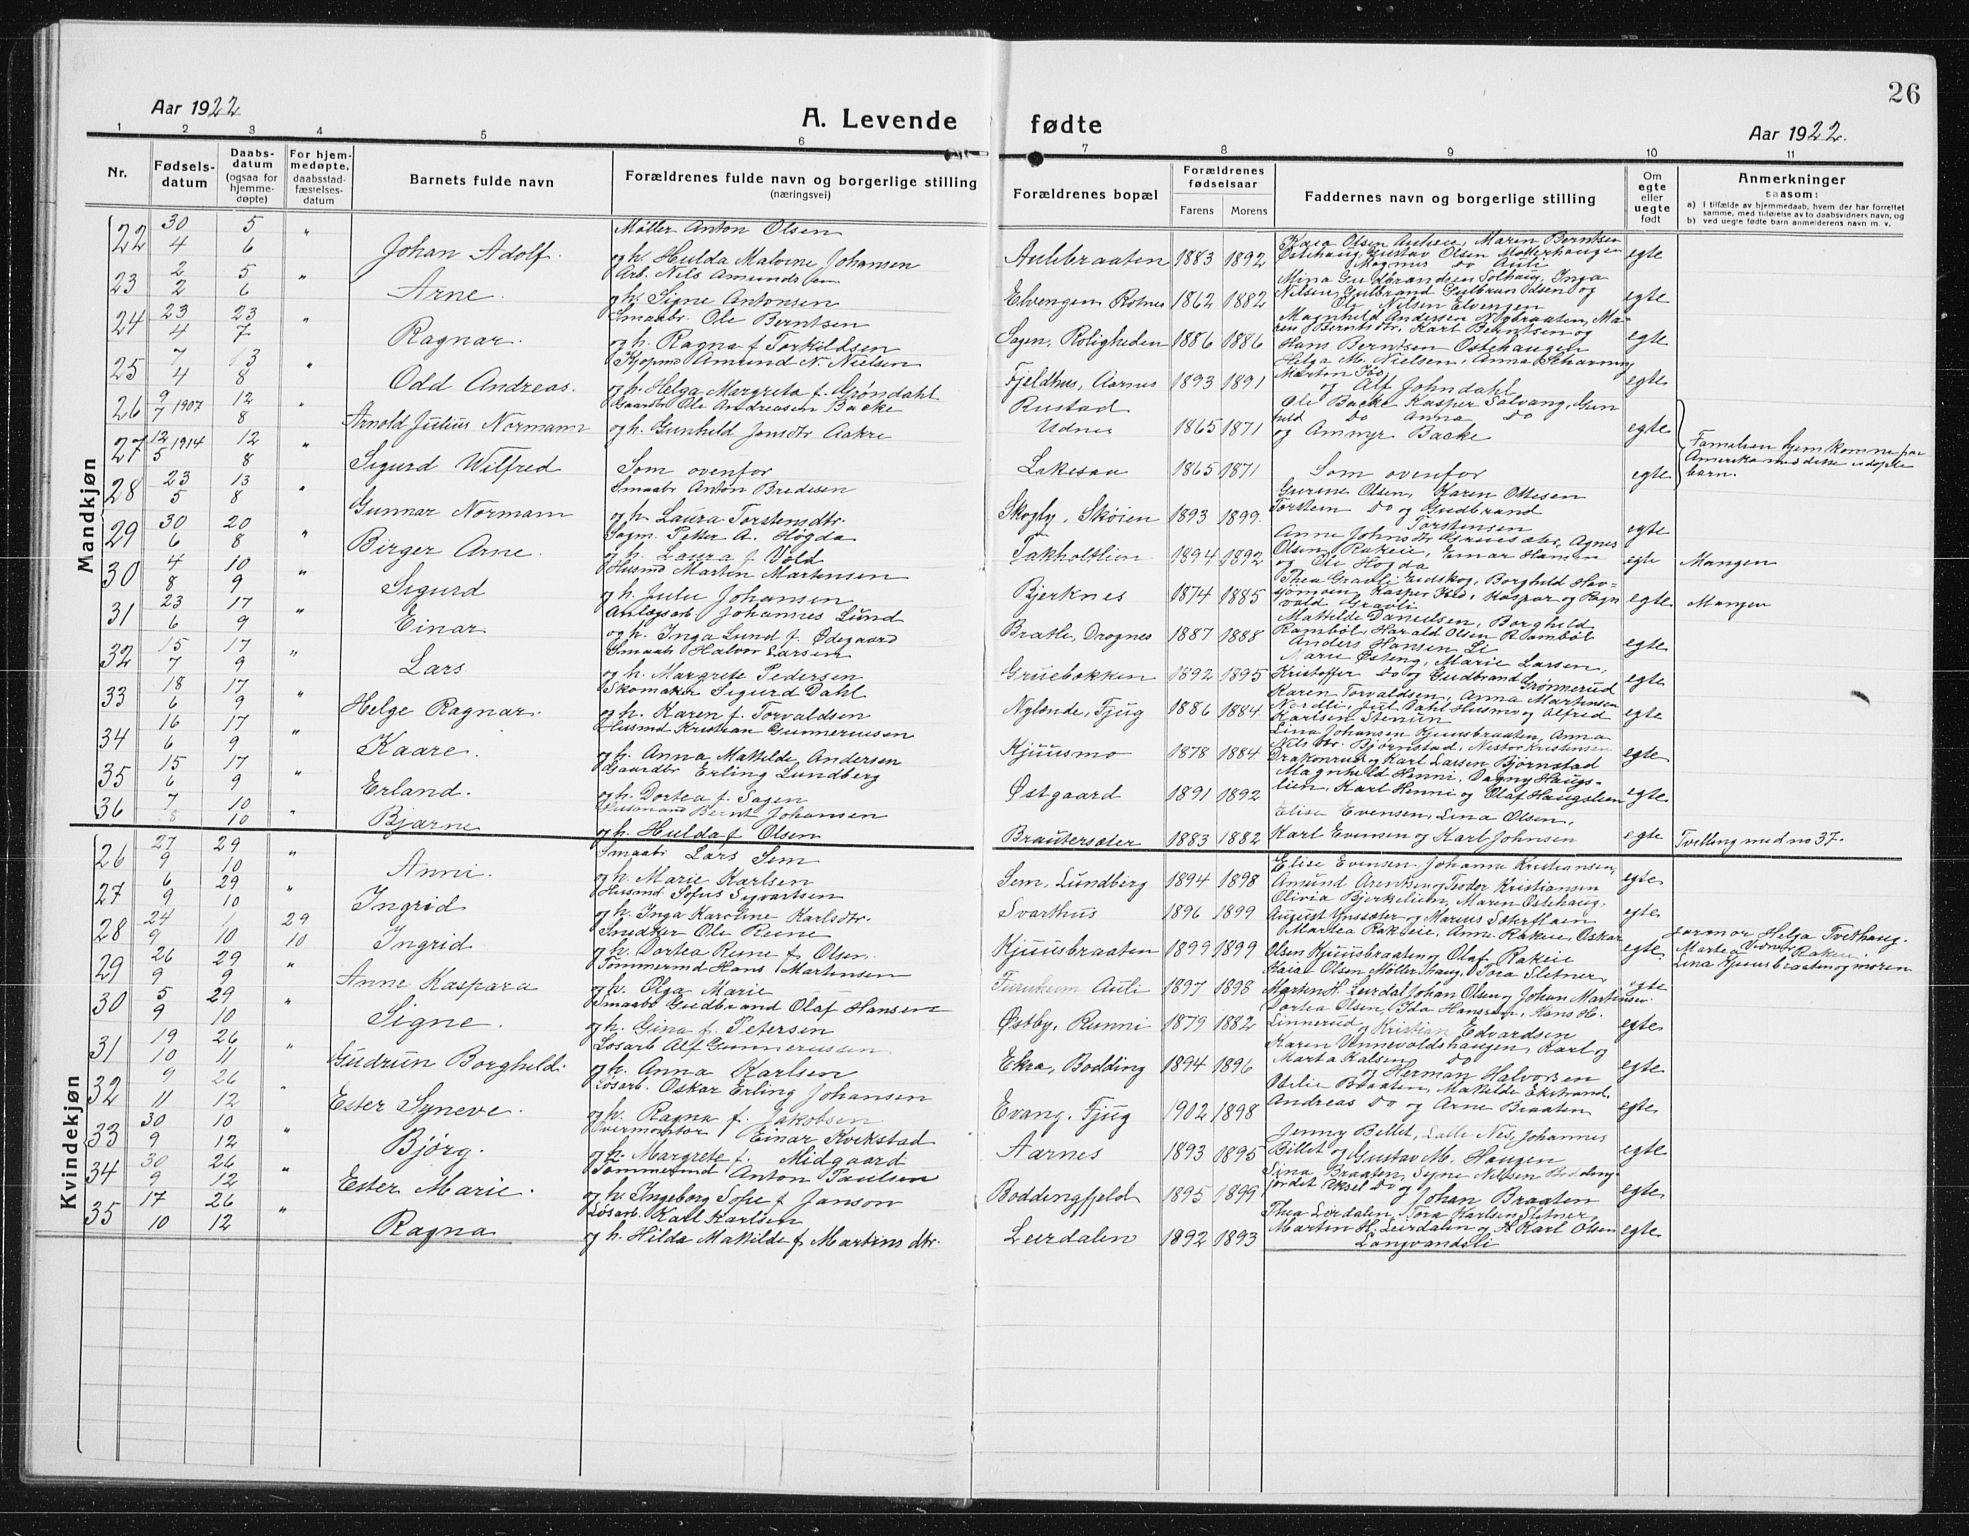 26
Aar 1922
A. Levende fødte
Aar 1922.
1 2 3 4 5 6 7 8 9 10 11
Nr.
Fødsels-
datum
Daabs-
datum
(ogsaa for
hjemme-
døpte)
For hjem-
medøpte,
daabsstad-
fæstelses-
datum
Barnets fulde navn
Forældrenes fulde navn og borgerlige stilling
(næringsvei)
Forældrenes bopæl
Forældrenes
fødselsaar
Farens Morens
Faddernes navn og borgerlige stilling
Om
egte
eller
uegte
født
Anmerkninger
saasom:
a) I tilfælde av hjemmedaab, hvem der har forrettet
samme, med tilføielse av to daabsvidners navn, og
b) ved uegte fødte barn anmelderens navn m. v.
Mandkjøn
22 30/4 5/6 " Johan Adolf. Møller Anton Olsen
og h. Hulda Malvine Johansen Aulibraaten 1883 1892 Kaia Olsen Aulie, Maren Berntsen
Østehaug, Gustav Olsen Møllerhaugen
Magnus Do Auli egte
23 2/2 5/6 " Arne. Arb. Nils Amundsen
og h. Signe Antonsen Elvengen Rotnes 1862 1882 Nilsen, Gulbrand Gulbrandsen og
Ole Nilsen Elvengen egte
24 23/4 23/7 " Ragnar. Smaabr. Ole Berntsen
og h. Ragna f. Torkildsen Sagen, Roligheden 1886 1886 Magnhild Andersen Nybraaten, Ma-
ren Berntsdtr, Karl Berntsen og
Hans Berntsen Østehaugen egte
25 7/4 13/8 " Odd Andreas. Kjøpmd Amund N. Nielsen
og h. Helga Margreta f. Grøndahl Fjeldhus, Aarnes 1893 1891 Helga M. Nielsen, Anna Scharning
og Alf Johndahl egte
26 9/7 1907 12/8 " Arnold Julius Normann Gaardbr Ole Andreasen Backe
og h. Gunhild Jensdtr Aakre Rustad
Udnes 1865 1871 Ole Backe Kasper Solvang, Gun
hild Do Anna Do
og Ammyr Backe egte
27 12/5 1914 12/8 " Sigurd Wilfred Som ovenfor Lakesaa 1865 1871 Som ovenfor egte Familien hjemkomne fra
Amerika med disse udøpte
barn.
28 23/5 13/8 " Gunnar Normann Smaabr Anton Bredesen
og h. Laura Torstensdtr. Skogly, Skøien 1893 1899. Gurine Olsen, Karen Ottesen
Torstein Do og Gudbrand
Torstensen egte
29 30/6 20/8 " Birger Arne. Sagm. Petter A. Høgda
og h. Laura f. Vold Takholtlien 1894 1892 Anne Johnsdtr Gruesæter, Agnes
Olsen Rakeie, Einar Hansen
og Ole Høgda egte Mangen
30 4/8 10/9 " Sigurd Husmd Martin Martensen
og h. Julie Johansen Bjerknes 1874 1885 Thea Gravli Eidskog, Borghild Hav-
vald Gravli egte Mangen
31 23/6 17/9 " Einar Anlægsarb Johannes Lund
og h. Inga Lund f. Ødegaard Bratli, Drognes 1887 1888 Mathilde Danielsen, Borghild
Rambøl, Harald Olsen Rambøl
Anders Hansen Li egte
32 15/7 17/9 " Lars Smaabr Halvor Larsen
og h. Margrete Pedersen Gruebakken 1892 1895 Marie Østeng, Marie Larsen,
Kristoffer Do og Gudbrand Grønnerud egte
33 18/6 17/9 " Helge Ragnar. Skomaker Sigurd Dahl
og h. Karen f. Torvaldsen Nylænde, Fjug 1886 1884 Karen Torvaldsen, Anna Martinsen
Nordli, Jul. Dahl Husmo og Alfred
Karlsen Stenun egte
34 16/6 17/9 " Kaare. Husmd Kristian Gunneriusen
og h. Anna Matilde Andersen Kjuusmo 1878 1884 Lina Johansen Kjuusbraaten, Anna
Nils dtr. Bjørnstad, Nistor Kristensen
Drakonrud og Karl Larsen Bjørnstad egte
35 15/6 17/9 " Erland. Gaardbr Erling Lundberg
og h. Dortea f. Sagen Østgaard 1891 1892 Magnhild Henni, Dagny Haugs-
lien, Karl Henni og Olaf Haugslien egte
36 7/8 10/10 " Bjarne Husmand Bernt Johansen
og h. Hulda f. Olsen Brautersæter 1883 1882 Elise Evensen, Lina Olsen,
Karl Evensen og Karl Johnsen egte Tvilling med no 37.
Kvindekjøn
26 27/9 29/10 " Anni. Smaabr Lars Sem
og h. Marie Karlsen Sem, Lundberg 1894 1898 Elise Evensen, Johanna Kristiansen,
Amund Arentsen og Teodor Kristiansen egte
27 6/9 29/10 " Ingrid Husmd Sofus Syvartsen
og h. Inga Karoline Karlsdtr. Svarthus 1896 1899 Olivia Bjerkelien, Maren Østehaug,
August Ynsæter og Marius Sæterflaen egte
28 24/9 1/10 29/10 Ingrid Snedker Ole Reine
og h. Dortea Reine f. Olsen. Kjuusbraaten 1899 1899 Martea Rakeie, Anne Rakeie, Oskar
Olsen Kjuusbraaten og Olaf Rakeie egte Jormor Helga Tvethaug.
Vidner
Martea Rakeie.
Lina Kjuusbraaten og moren
29 26/9 29/9 " Anne Kaspara Tømmermd Hans Martensen
og h. Olga Marie Furuheim Auli 1897 1898 Kaia Olsen Møllerhaug, Tora Sletner,
Marten H. Leirdal, Johan Olsen og Johan Martinsen. egte
30 5/9 29/10 " Signe. Smaabr Gudbrand Olaf Hansen
og h. Gina f. Petersen Østby, Runni 1879 1882 Dortea Olsen, Ida Hanssen, Hans H.
Linnerud og Kristian Edvardsen egte
31 19/10 26/11 " Gudrun Borghild. Løsarb Alf Gunneriussen
og h. Anna Karlsen Ekra, Bodding 1894 1896 Karen Vennevoldshaugen, Karl og
Marta Kalsen Do
og Herman Halvorsen egte
32 9/11 26/12 " Ester Synøve. Løsarb. Oskar Erling Johansen
og h. Ragna f. Jakobsen Evang, Fjug 1902 1898 Otelie Braaten, Matilde Ekstrand,
Andreas Do og Arne Braaten egte
33 30/9 10/12 " Bjørg. Overmontør Einar Kvikstad
og h. Margrete f. Midgaard Aarnes 1893 1895 Jenny Billet, Lalle Nes, Johannes
Billet og Gustav M. Haugen egte
34 30/9 26/12 " Ester Marie. Tømmermd Anton Paulsen
og h. Ingeborg Sofie f. Janson Boddingfjeld 1895 1899 Lina Braaten, Syne Nilsen Bodding-
jordet Aksel Do og Johan Braaten egte
35 17/10 26/12 " Ragna Løsarb. Karl Karlsen
og h. Hilda Matilde f. Martinsdtr. Leirdalen 1892 1893 Thea Leirdalen, Tora Karlsen Sletner,
Martin H. Leirdalen og Karl Olsen
Langvandsli egte